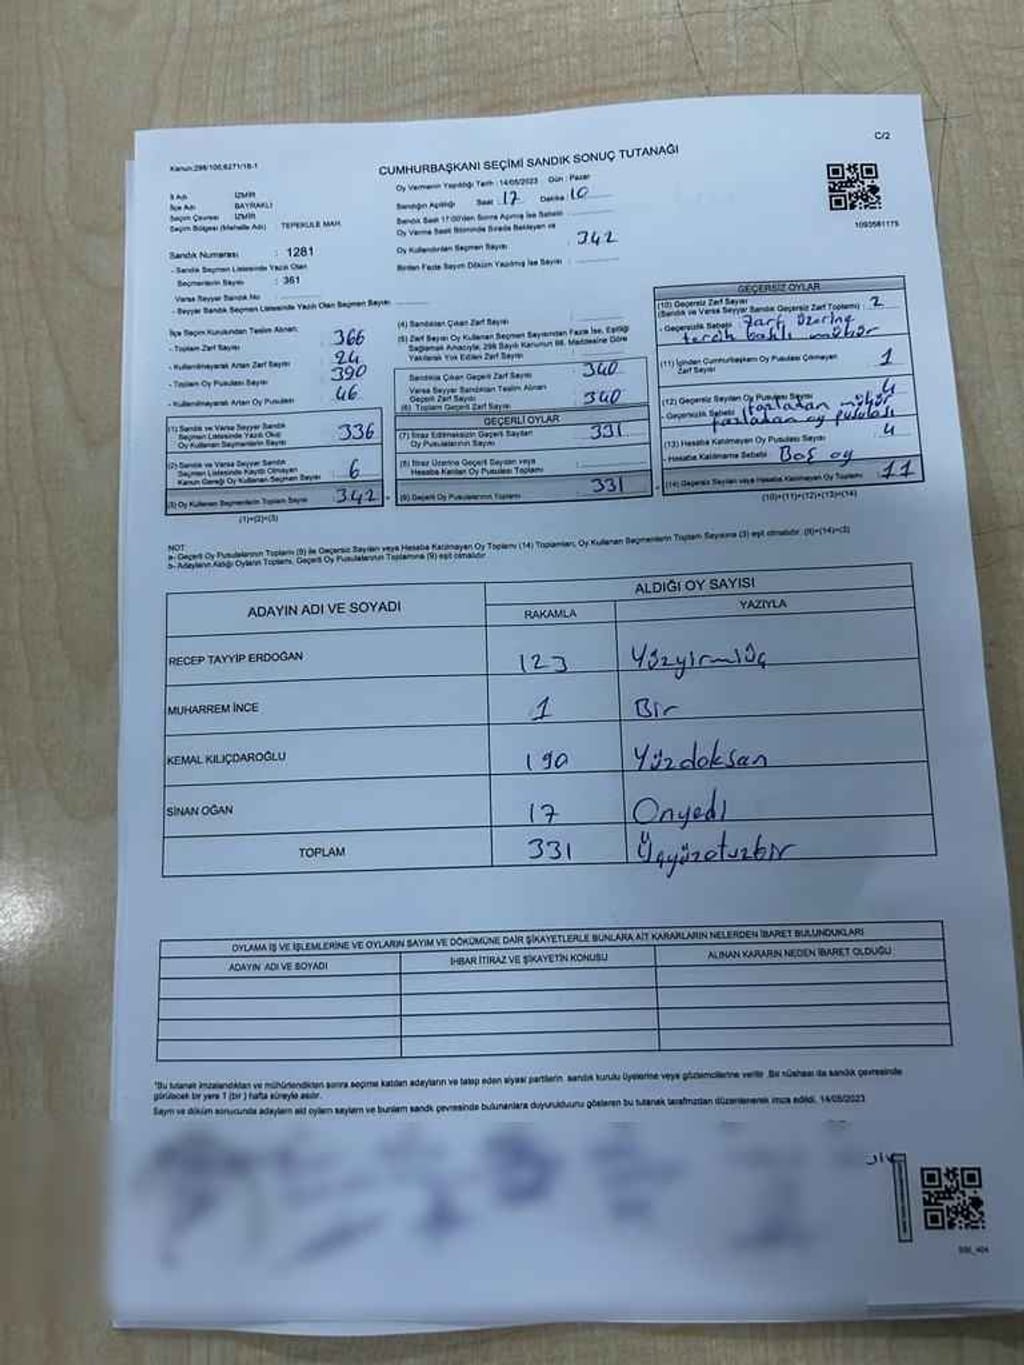 C/2
Kanun:298/100,6271/18-1
CUMHURBAŞKANI SEÇİMİ SANDIK SONUÇ TUTANAĞI
İl Adı İZMİR
İlçe Adı BAYRAKLI
Seçim Çevresi İZMİR
Seçim Bölgesi (Mahalle Adı) TEPEKULE MAH.
Oy Vermenin Yapıldığı Tarih : 14/05/2023 Gün : Pazar
Sandığın Açıldığı Saat : 17 Dakika : 10
Sandık Saat 17:00'den Sonra Açılmış İse Sebebi
Oy Verme Saati Bitiminde Sırada Bekleyen ve
Oy Kullandırılan Seçmen Sayısı : 342
Birden Fazla Sayım Döküm Yapılmış İse Sayısı :
1093581175
Sandık Numarası : 1281
- Sandık Seçmen Listesinde Yazılı Olan
Seçmenlerin Sayısı : 361
Varsa Seyyar Sandık No :
- Seyyar Sandık Seçmen Listesinde Yazılı Olan Seçmen Sayısı
İlçe Seçim Kurulundan Teslim Alınan;
- Toplam Zarf Sayısı 366
- Kullanılmayarak Artan Zarf Sayısı 24
- Toplam Oy Pusulası Sayısı 390
- Kullanılmayarak Artan Oy Pusulası 46
(1) Sandık ve Varsa Seyyar Sandık
Seçmen Listesinde Yazılı Olup
Oy Kullanan Seçmenlerin Sayısı 336
(2) Sandık ve Varsa Seyyar Sandık
Seçmen Listesinde Kayıtlı Olmayan
Kanun Gereği Oy Kullanan Seçmen Sayısı 6
(3) Oy Kullanan Seçmenlerin Toplam Sayısı 342
(1)+(2)=(3)
(4) Sandıktan Çıkan Zarf Sayısı :
(5) Zarf Sayısı Oy Kullanan Seçmen Sayısından Fazla İse, Eşitliği
Sağlamak Amacıyla, 298 Sayılı Kanunun 98. Maddesine Göre
Yakılarak Yok Edilen Zarf Sayısı
Sandıkta Çıkan Geçerli Zarf Sayısı 340
Varsa Seyyar Sandıktan Teslim Alınan
Geçerli Zarf Sayısı
(6) Toplam Geçerli Zarf Sayısı 340
GEÇERLİ OYLAR
(7) İtiraz Edilmeksizin Geçerli Sayılan
Oy Pusulasının Sayısı 331
(8) İtiraz Üzerine Geçerli Sayılan veya
Hesaba Katılan Oy Pusulası Toplamı
(9) Geçerli Oy Pusulalarının Toplamı 331
GEÇERSİZ OYLAR
(10) Geçersiz Zarf Sayısı
(Sandık ve Varsa Seyyar Sandık Geçersiz Zarf Toplamı) : 2
- Geçersizlik Sebebi Zarf üzerine
tercih mühür
(11) İçinden Cumhurbaşkanı Oy Pusulası Çıkmayan
Zarf Sayısı 1
(12) Geçersiz Sayılan Oy Pusulası Sayısı 4
- Geçersizlik Sebebi fazladan mühür
fazladan oy pusulası
(13) Hesaba Katılmayan Oy Pusulası Sayısı 4
- Hesaba Katılmama Sebebi Boş oy
(14) Geçersiz Sayılan veya Hesaba Katılmayan Oy Toplamı 11
(10)+(11)+(12)+(13)=(14)
NOT:
a- Geçerli Oy Pusulalarının Toplamı (9) ile Geçersiz Sayılan veya Hesaba Katılmayan Oy Toplamı (14) Toplamları, Oy Kullanan Seçmenlerin Toplam Sayısına (3) eşit olmalıdır. (9)+(14)=(3)
b- Adayların Aldığı Oyların Toplamı, Geçerli Oy Pusulalarının Toplamına (9) eşit olmalıdır.
ADAYIN ADI VE SOYADI ALDIĞI OY SAYISI
RAKAMLA YAZIYLA
RECEP TAYYİP ERDOĞAN 123 Yüzyirmiüç
MUHARREM İNCE 1 Bir
KEMAL KILIÇDAROĞLU 190 Yüzdoksan
SİNAN OĞAN 17 Onyedi
TOPLAM 331 Üçyüzotuzbir
OYLAMA İŞ VE İŞLEMLERİNE VE OYLARIN SAYIM VE DÖKÜMÜNE DAİR ŞİKAYETLERLE BUNLARA AİT KARARLARIN NELERDEN İBARET BULUNDUKLARI
ADAYIN ADI VE SOYADI İHBAR İTİRAZ VE ŞİKAYETİN KONUSU ALINAN KARARIN NEDEN İBARET OLDUĞU
"Bu tutanak imzalandıktan ve mühürlendikten sonra seçime katılan adayların ve talep eden siyasi partilerin sandık kurulu üyelerine veya gözlemcilerine verilir. Bir nüshası da sandık çevresinde
görülecek bir yere 1 (bir ) hafta süreyle asılır.
Sayım ve döküm sonucunda adayların ald oyların sayıların ve bunların sandk çevresinde bulunanlara duyurulduunu gösteren bu tutanak tarafmızdan düzenlenerek imza edildi. 14/05/2023